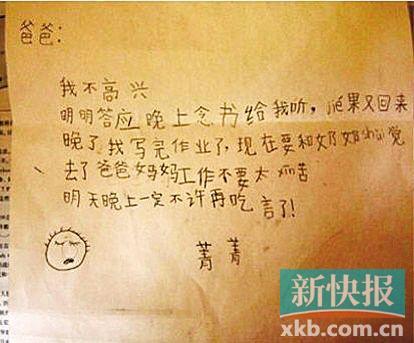 爸爸:
我不高兴
明明答应晚上念书给我听, jié果又回来
晚了我写完作业了,现在要和奶奶shuì觉
去了爸爸妈妈工作不要太苦
明天晚上一定不许再吃言了!
菁菁
新快报
xkb.com.cn